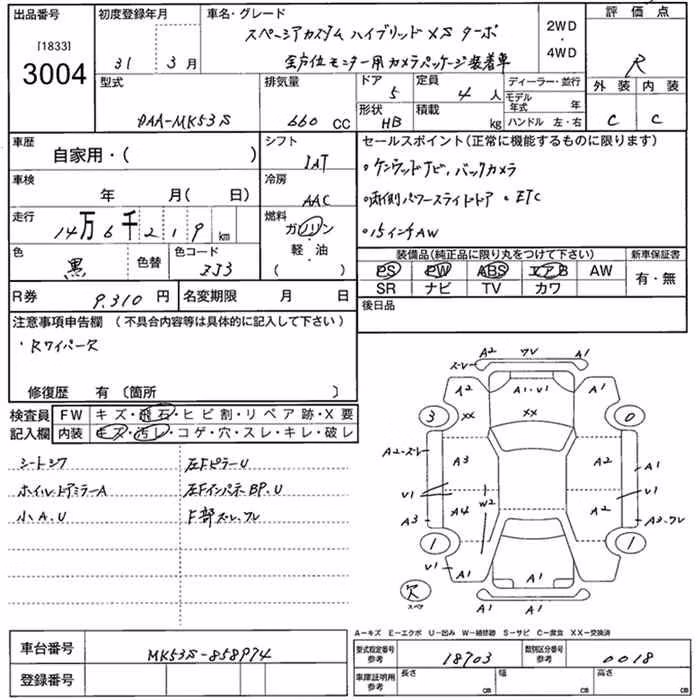 出品番号
[1833]
3004
初度登録年月
31年 3月
車名・グレード
スペーシアカスタム ハイブリッド XS ターボ
全方位モニター用カメラパッケージ装着車
2WD
・
4WD
評価点
R
外装 内装
C C
型式
DAA-MK53S
排気量
660 CC
ドア
5
定員
4 人
形状
HB
積載
kg
ディーラー・並行
モデル年式 年
ハンドル 左・右
車歴
自家用・( )
シフト
IAT
車検
年 月( 日)
冷房
AAC
走行
14万6千219 km
燃料
ガソリン
・
軽・油
( )
色
黒
色替
色コード
ZJ3
R券
9,310 円
名変期限 月 日
セールスポイント(正常に機能するものに限ります)
・ケンウッドナビ、バックカメラ
・両側パワースライドドア ・ETC
・15インチAW
装備品(純正品に限り丸をつけて下さい)
PS PW ABS エアB AW
SR ナビ TV カワ
新車保証書
有・無
後日品
注意事項申告欄 (不具合内容等は具体的に記入して下さい)
・Rワイパー欠
修復歴 有〔箇所 〕
検査員記入欄
FW キズ・飛石・ヒビ割・リペア跡・X要
内装 キズ・汚レ・コゲ・穴・スレ・キレ・破レ
シートシワ
ホイル・ドアミラーA
小A.U
左FピラーU
左Fインパネ BP.U
F部ズレ、ワレ
A2 ワレ A1
ズレ
A2 A1・U1 A1
XX XX
3 0
A2・ズレ
A3 A2 A1
U1 U1
A3 A4 W2 A2 A3・ワレ
1 1
U1 A1 A1 A1
欠
スペア
A1 A1
A-キズ E-エクボ U-凹み W-補修跡 S-サビ C-腐食 XX-交換済
車台番号
MK53S-858974
登録番号
型式指定番号
参考
18703
類別区分番号
参考
0018
車庫証明用
参考
長さ cm
幅 cm
高さ cm